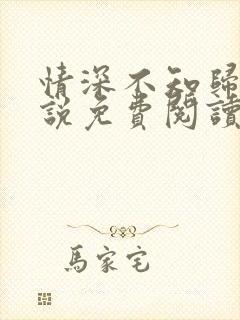 情深不知歸
說免費閱讀
馬家宅